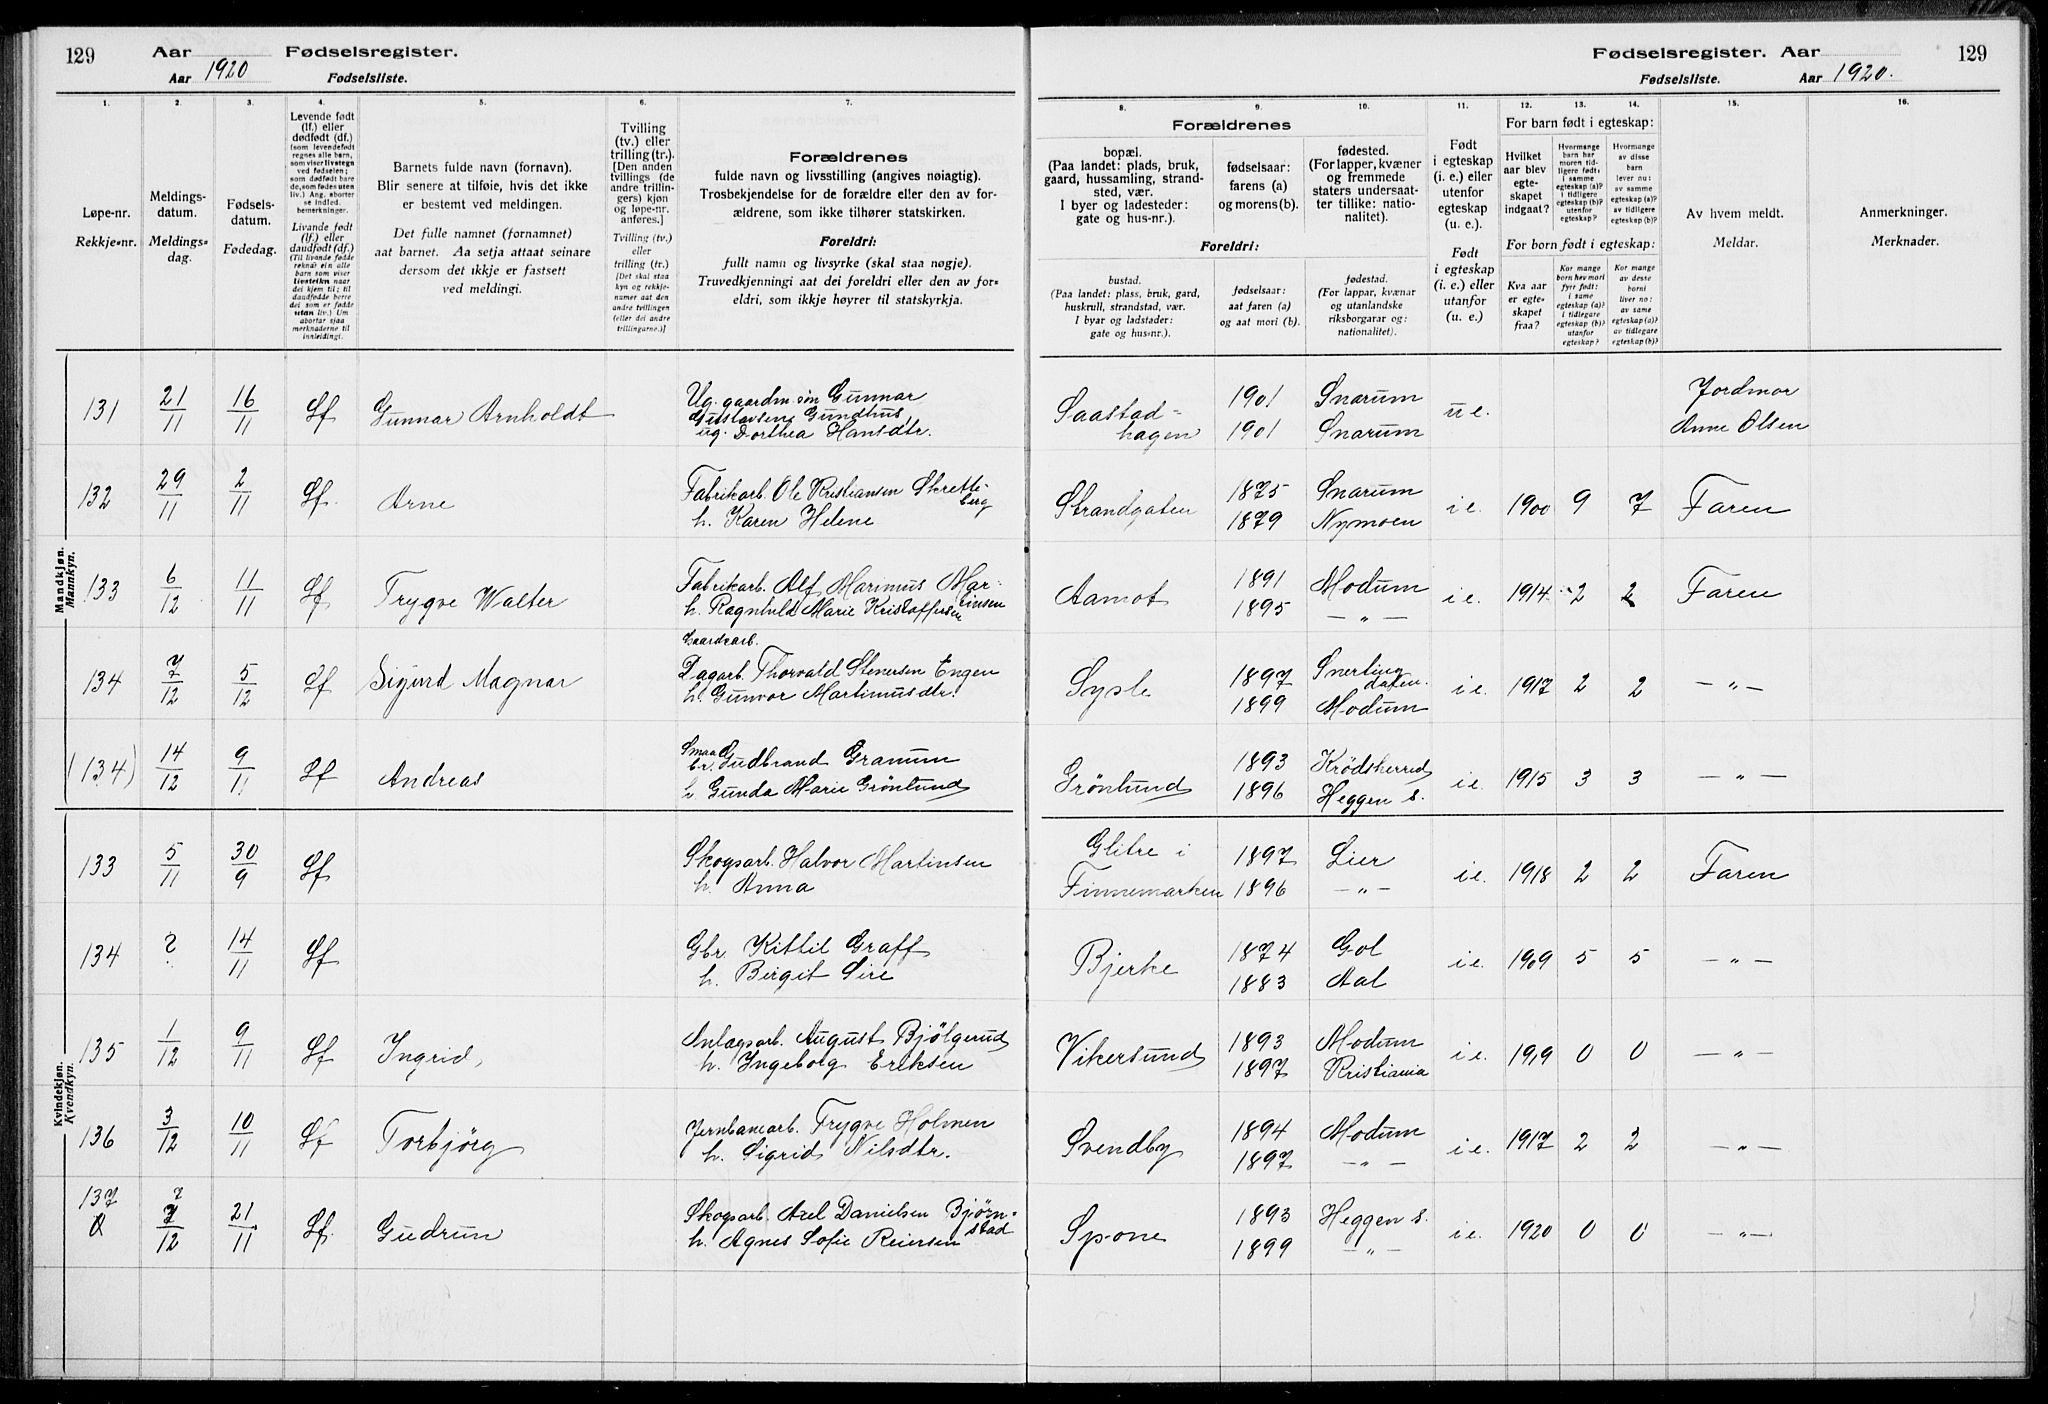 129 Aar Fødselsregister.
Aar 1920 Fødselsliste.
Fødselsregister. Aar 129
Fødselsliste. Aar 1920.
1. 2. 3. 4. 5. 6. 7. 8. 9. 10. 11. 12. 13. 14. 15. 16.
Løpe-nr.
Rekkje-nr.
Meldings-
datum.
Meldings-
dag.
Fødsels-
datum.
Fødedag.
Levende født
(lf.) eller
dødfødt (df.)
(som levendefødt
regnes alle barn,
som viser livstegn
ved fødselen;
som dødfødt bare
de, som fødes uten
liv.) Ang. aborter
se indled.
bemerkninger.
Livande fødd
(lf.) eller
daudfødt (df.)
(Til livande fødde
reknar ein alle
barn som viser
livsteikn naar
dei kjem til; til
daudfødde berre
dei som er fødde
utan liv.) Um
abortar sjaa
merknaderne til
innleidingi.
Barnets fulde navn (fornavn).
Blir senere at tilføie, hvis det ikke
er bestemt ved meldingen.
Det fulle namnet (fornamnet)
aat barnet. Aa setja attaat seinare
dersom det ikkje er fastsett
ved meldingi.
Tvilling
(tv.) eller
trilling (tr.).
[Den anden
tvillings (de
andre trillin-
gers) kjøn
og løpe-nr.
anføres.]
Tvilling (tv.)
eller
trilling (tr.)
[Det skal staa
kyn og rekkje-
numer aat den
andre tvillingen
(eller dei andre
trillingarne.)]
Forældrenes
fulde navn og livsstilling (angives nøiagtig).
Trosbekjendelse for de forældre eller den av for-
ældrene, som ikke tilhører statskirken.
Foreldri:
fullt namn og livsyrke (skal staa nøgje).
Truvedkjenningi aat dei foreldri eller den av for-
eldri, som ikkje høyrer til statskyrkja.
Forældrenes
bopæl.
(Paa landet: plads, bruk,
gaard, hussamling, strand-
sted, vær.
I byer og ladesteder:
gate og hus-nr.).
fødselsaar:
farens (a)
og morens (b).
fødested.
(For lapper, kvæner
og fremmede
staters undersaat-
ter tillike: natio-
nalitet).
Foreldri:
bustad.
(Paa landet: plass, bruk, gard,
huskrull, strandstad, vær.
I byar og ladstader:
gate og hus-nr.).
fødselsaar:
aat faren (a)
og aat mori (b).
fødestad.
(For lappar, kvænar
og utanlandske
riksborgarar og:
nationalitet).
Født
i egteskap
(i. e.) eller
utenfor
egteskap
(u. e.).
Født
i egteskap
(i. e.) eller
utanfor
(u. e.)
For barn født i egteskap:
Hvilket
aar blev
egte-
skapet
indgaat?
Hvormange
barn har
moren tid-
ligere født:
i samme
egteskap (a)?
i tidligere
egteskap (b)?
utenfor
egteskap?
Hvormange
av disse
barn
lever nu:
av samme
egteskap (a)?
av tidligere
egteskap (b)?
For born født i egteskap:
Kva aar
er egte-
skapet
fraa?
Kor mange
born hev mori
fyrr født:
i same
egteskap (a)?
i tidlegare
egteskap (b)?
utanfor
egteskap?
Kor mange
av desse
borni
liver no:
av same
egteskap (a)?
av tidlegare
egteskap (b)?
Av hvem meldt.
Meldar.
Anmerkninger.
Merknader.
Mandkjøn.
Mannkyn.
131 21/11 16/11 Lf Gunnar Arnholdt Ug. gaardm.søn Gunnar Saastad- 1901 Snarum u e. Jordmor
Gustavsen Gundhus,
ug. Dorthea Hansdtr. hagen 1901 Snarum Anne Olsen
132 29/11 2/11 Lf. Arne Fabrikarb. Ole Kristiansen Skrette- Strandgaten 1875 Snarum i e. 1900 9 7 Faren
berg
h. Karen Helene 1879 Nymoen
133 6/12 11/11 Lf Trygve Walter Fabrikarb. Alf Marinius Mar- Aamot 1891 Modum i e. 1914 2 2 Faren
h. Ragnhild Marie Kristoffersen tinsen 1895 — " —
Gaardsarb.
134 7/12 5/12 Lf Sigurd Magnar Dagarb. Thorvald Stenersen Engen Sysle 1897 Snerting- i e. 1917 2 2 — " —
dalen.
h. Gunvor Martinusdtr. 1899 Modum
(134) 14/12 9/11 Lf Andreas Smaabr. Gudbrand Granum Grönlund 1893 Krödsherred i e. 1915 3 3 — " —
h Gunda Marie Grönlund 1896 Heggen s.
Kvindekjøn.
Kvendkyn.
133 5/11 30/9 Lf Skogsarb. Halvor Martinsen Glitre i 1897 Lier i e. 1918 2 2 Faren
h. Anna Finnemarken 1896 — " —
134 ? 14/11 Lf Gbr. Kittil Graff Bjerke 1874 Gol i e. 1909 5 5 — " —
h. Birgit Sire 1883 Aal
135 1/12 9/11 Lf Ingrid, Anlægsarb. August Bjölgerud Vikersund 1893 Modum i e. 1919 0 0 — " —
h. Ingeborg Eriksen 1897 Kristiania
136 3/12 10/11 Lf Torbjörg Jernbanearb. Trygve Holmen Svendby 1894 Modum i e. 1917 2 2 — " —
h. Sigrid Nilsdtr. 1897 — " —
137 7/12 21/11 Lf. Gudrun Skogsarb. Axel Danielsen Bjørn- Spone 1893 Heggen s. i e. 1920 0 0 — " —
h. Agnes Sofie Reiersen stad 1899 — " —